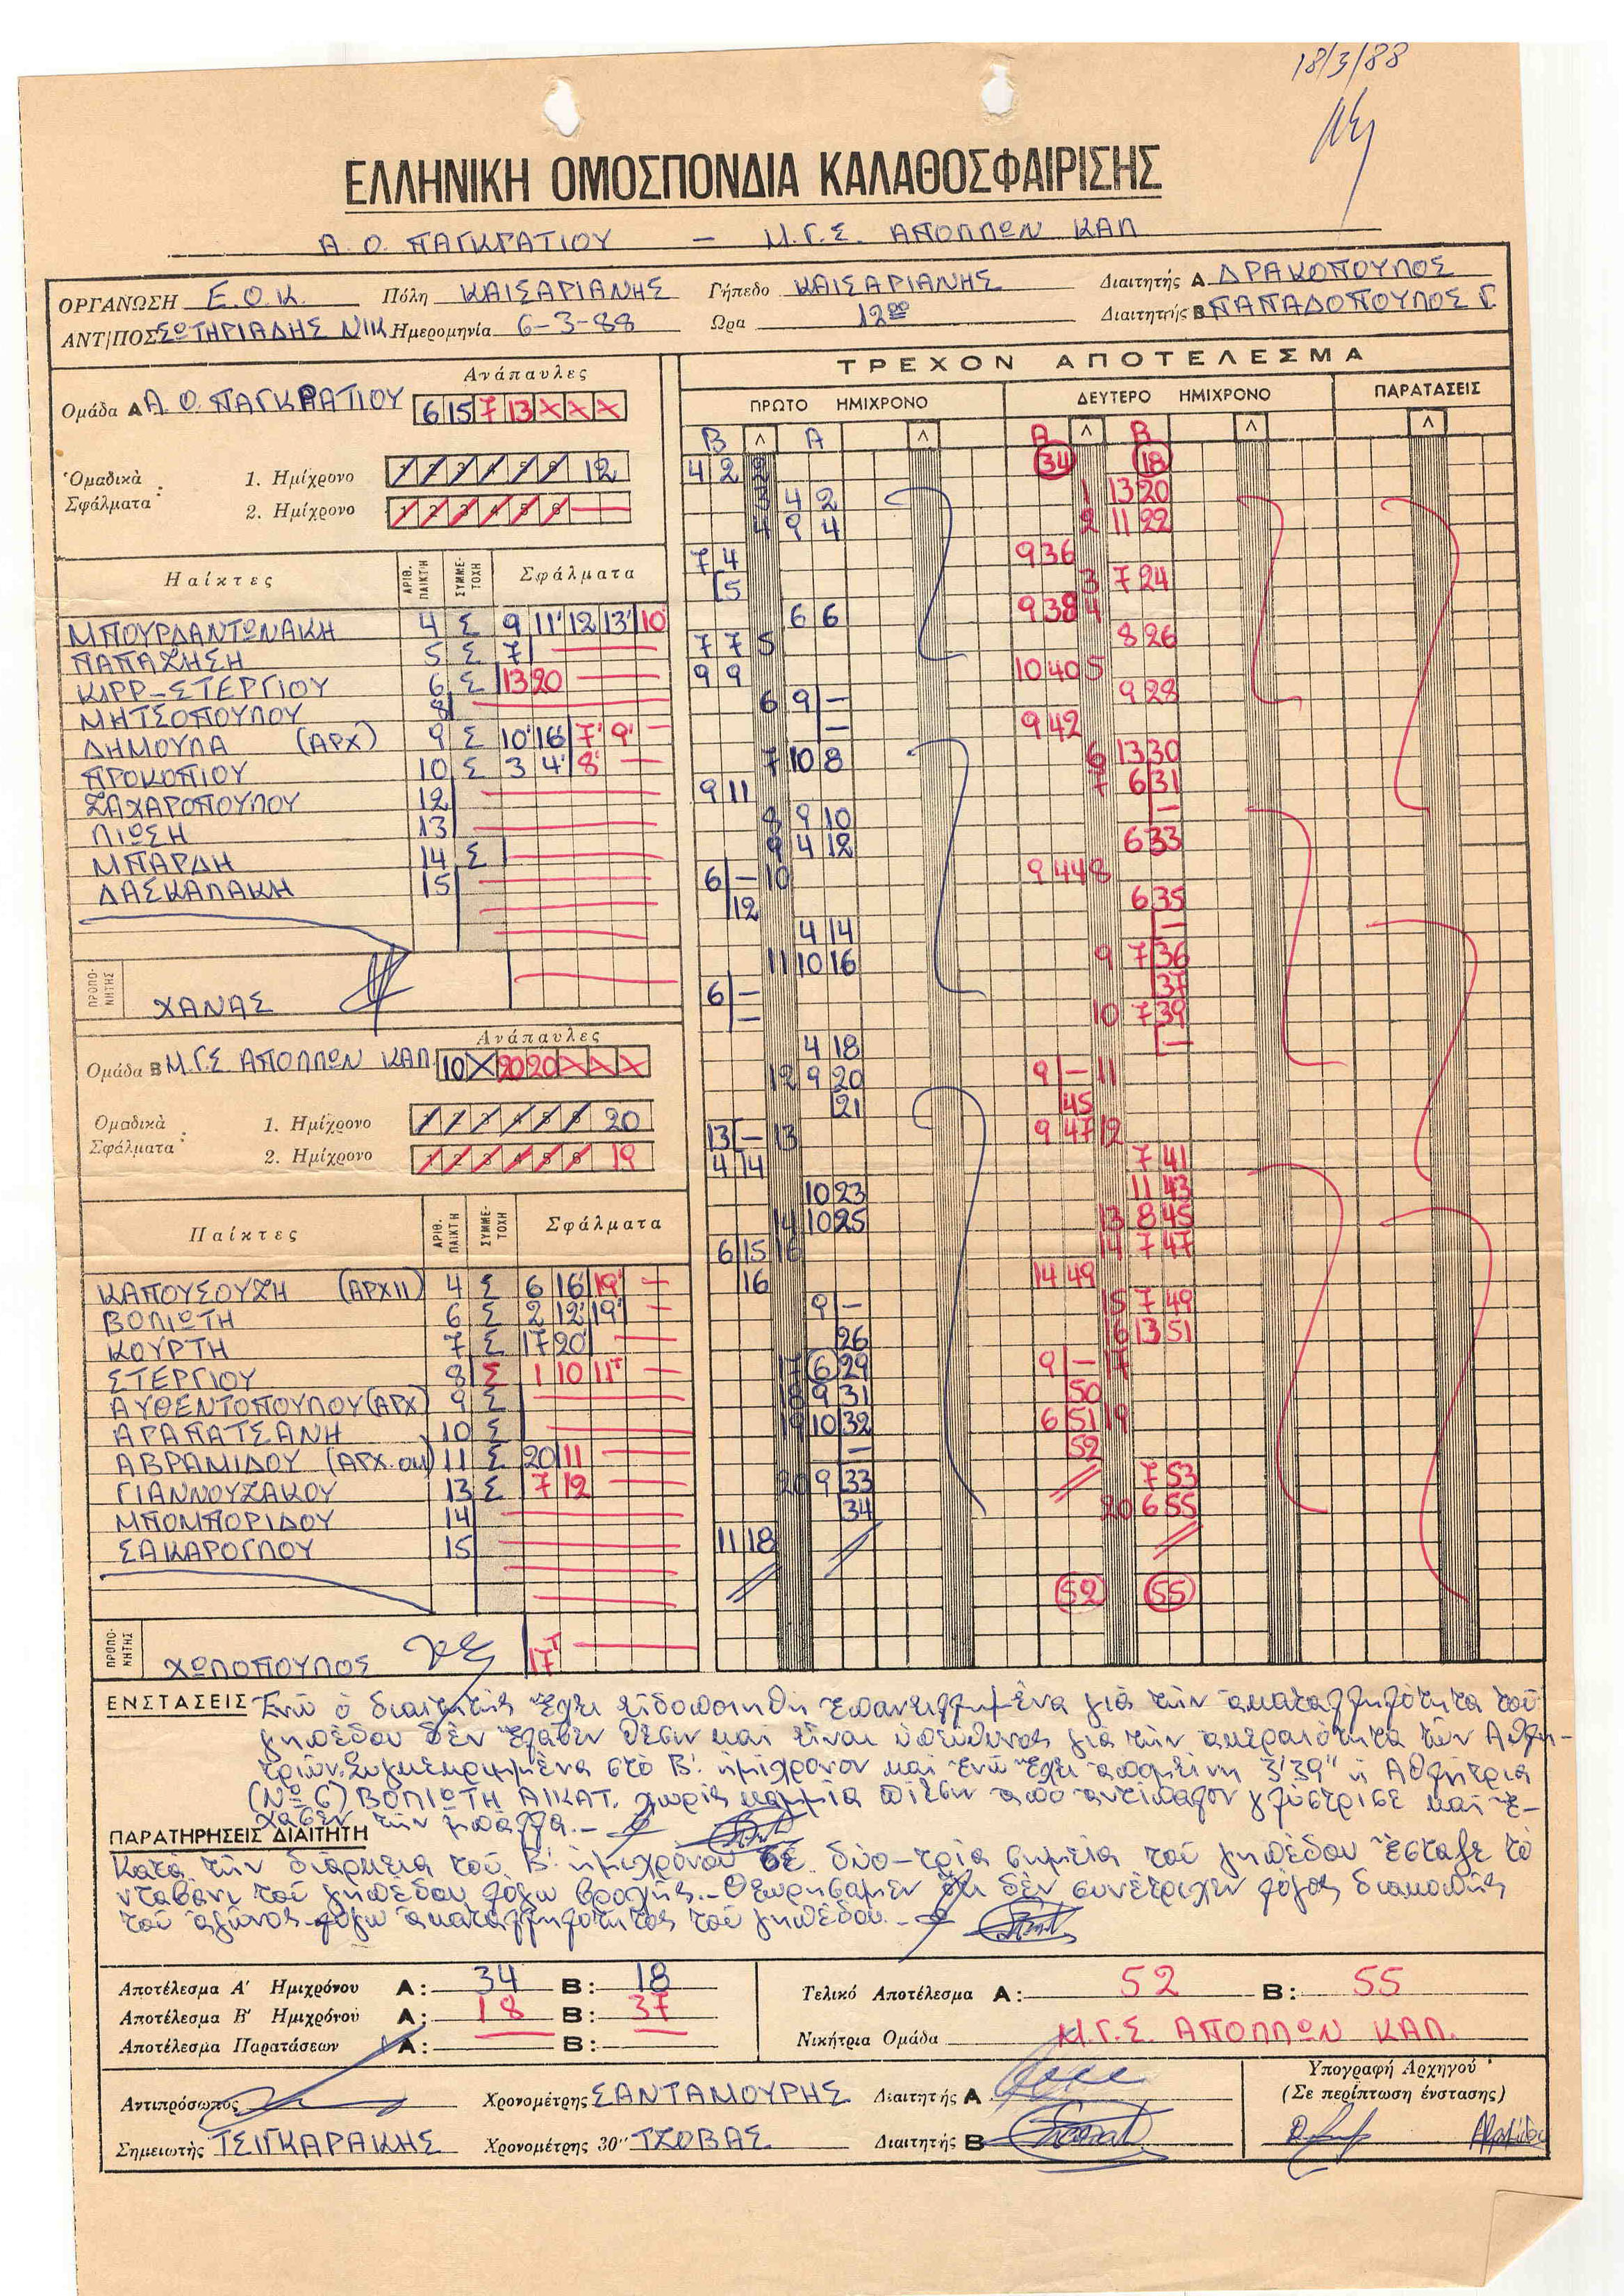 18/3/88
ΕΛΛΗΝΙΚΗ ΟΜΟΣΠΟΝΔΙΑ ΚΑΛΑΘΟΣΦΑΙΡΙΣΗΣ
Α. Ο. ΠΑΓΚΡΑΤΙΟΥ – Μ.Γ.Σ. ΑΠΟΛΛΩΝ ΚΑΛ
ΟΡΓΑΝΩΣΗ Ε.Ο.Κ. Πόλη ΚΑΙΣΑΡΙΑΝΗΣ Γήπεδο ΚΑΙΣΑΡΙΑΝΗΣ Διαιτητής Α ΔΡΑΚΟΠΟΥΛΟΣ
ΑΝΤ/ΠΟΣ ΣΩΤΗΡΙΑΔΗΣ ΝΙΚ Ημερομηνία 6-3-88 Ώρα 12⁰⁰ Διαιτητής Β ΠΑΠΑΔΟΠΟΥΛΟΣ Γ.
Ανάπαυλες
Ομάδα Α Α. Ο. ΠΑΓΚΡΑΤΙΟΥ 6 15 7 13 X X X
Ομαδικά Σφάλματα :
1. Ημίχρονο 1 2 3 4 5 6 12
2. Ημίχρονο 1 2 3 4 5 6 —
Παίκτες ΑΡΙΘ. ΠΑΙΚΤΗ ΣΥΜΜΕΤΟΧΗ Σφάλματα
ΜΠΟΥΡΔΑΝΤΩΝΑΚΗ 4 Σ 9 11' 12' 13' 10
ΠΑΠΑΖΗΣΗ 5 Σ 7
ΚΙΡΡ-ΣΤΕΡΓΙΟΥ 6 Σ 13 20
ΜΗΤΣΟΠΟΥΛΟΥ 8
ΔΗΜΟΥΛΑ (ΑΡΧ) 9 Σ 10' 16' 7' 9'
ΠΡΟΚΟΠΙΟΥ 10 Σ 3 4' 8'
ΖΑΧΑΡΟΠΟΥΛΟΥ 12
ΛΙΩΣΗ 13
ΜΠΑΡΔΗ 14 Σ
ΔΑΣΚΑΛΑΚΗ 15
ΠΡΟΠΟΝΗΤΗΣ ΧΑΝΑΣ
Ανάπαυλες
Ομάδα Β Μ.Γ.Σ ΑΠΟΛΛΩΝ ΚΑΛ. 10 X 20 20 X X X
Ομαδικά Σφάλματα :
1. Ημίχρονο 1 2 3 4 5 6 20
2. Ημίχρονο 1 2 3 4 5 6 19
Παίκτες ΑΡΙΘ. ΠΑΙΚΤΗ ΣΥΜΜΕΤΟΧΗ Σφάλματα
ΚΑΠΟΥΣΟΥΖΗ (ΑΡΧΙΙ) 4 Σ 6 16' 19'
ΒΟΛΙΩΤΗ 6 Σ 2 12' 19'
ΚΟΥΡΤΗ 7 Σ 17 20'
ΣΤΕΡΓΙΟΥ 8 Σ 1 10 11Τ
ΑΥΘΕΝΤΟΠΟΥΛΟΥ (ΑΡΧ) 9 Σ
ΑΡΑΠΑΤΣΑΝΗ 10 Σ
ΑΒΡΑΜΙΔΟΥ 11 Σ 20 11
ΓΙΑΝΝΟΥΖΑΚΟΥ 13 Σ 7 12
ΜΠΟΜΠΟΡΙΔΟΥ 14
ΣΑΚΑΡΟΓΛΟΥ 15
ΠΡΟΠΟΝΗΤΗΣ ΧΩΛΟΠΟΥΛΟΣ 17Τ
ΤΡΕΧΟΝ ΑΠΟΤΕΛΕΣΜΑ
ΠΡΩΤΟ ΗΜΙΧΡΟΝΟ ΔΕΥΤΕΡΟ ΗΜΙΧΡΟΝΟ ΠΑΡΑΤΑΣΕΙΣ
Β Λ Α Λ Α Λ Β Λ Λ
4 2 2 34 18
3 4 2 1 13 20
4 9 4 2 11 22
7 4 9 36
5 3 7 24
6 6 9 38 4
7 7 5 8 26
9 9 10 40 5
6 9 – 9 28
– 9 42
7 10 8 6 13 30
9 11 7 6 31
8 9 10 –
9 4 12 6 33
6 – 10 9 44 8
12 6 35
4 14 –
11 10 16 9 7 36
6 – 37
– 10 7 39
4 18 –
12 9 20 9 – 11
21 45
13 – 13 9 47 12
4 14 7 41
10 23 11 43
14 10 25 13 8 45
6 15 16 14 7 47
16 14 49
9 – 15 7 49
26 16 13 51
17 6 29 9 – 17
18 9 31 50
19 10 32 6 51 19
– 52
20 9 33 7 53
34 20 6 55
11 18
52 55
ΕΝΣΤΑΣΕΙΣ Ενώ ὁ διαιτητής ἔχει εἰδοποιηθῆ ἐπανειλημμένα γιά τήν ἀκαταλληλότητα τοῦ
γηπέδου δέν ἔλαβεν θέσιν καί εἶναι ὑπεύθυνος γιά τήν ἀκεραιότητα τῶν Αθλη-
τριών. Συγκεκριμμένα στό Β'. ἡμίχρονον καί ἐνῶ ἔχει ἀπομείνη 3'39" ἡ Αθλήτρια
(Νο 6) ΒΟΛΙΩΤΗ ΑΙΚΑΤ. χωρίς καμμία πίεσιν ἀπό ἀντίπαλον γλύστρισε καί ἔ-
χασεν τήν μπάλλα.–
ΠΑΡΑΤΗΡΗΣΕΙΣ ΔΙΑΙΤΗΤΗ
Κατά τήν διάρκεια τοῦ Β' ἡμιχρόνου σέ δύο-τρία σημεῖα τοῦ γηπέδου ἔσταζε τό
νταβάνι τοῦ γηπέδου λόγω βροχῆς.– Θεωρήσαμεν ὅτι δέν συνέτρεχεν λόγος διακοπῆς
τοῦ ἀγῶνος λόγω ἀκαταλληλότητος τοῦ γηπέδου.–
Αποτέλεσμα Α' Ημιχρόνου Α: 34 Β: 18
Αποτέλεσμα Β' Ημιχρόνου Α: 18 Β: 37
Αποτέλεσμα Παρατάσεων Α: Β:
Τελικό Αποτέλεσμα Α: 52 Β: 55
Νικήτρια Ομάδα Μ.Γ.Σ. ΑΠΟΛΛΩΝ ΚΑΛ.
Αντιπρόσωπος Χρονομέτρης ΣΑΝΤΑΜΟΥΡΗΣ Διαιτητής Α
Σημειωτής ΤΣΙΓΚΑΡΑΚΗΣ Χρονομέτρης 30'' ΤΖΟΒΑΣ Διαιτητής Β
Υπογραφή Αρχηγού
(Σε περίπτωση ένστασης)